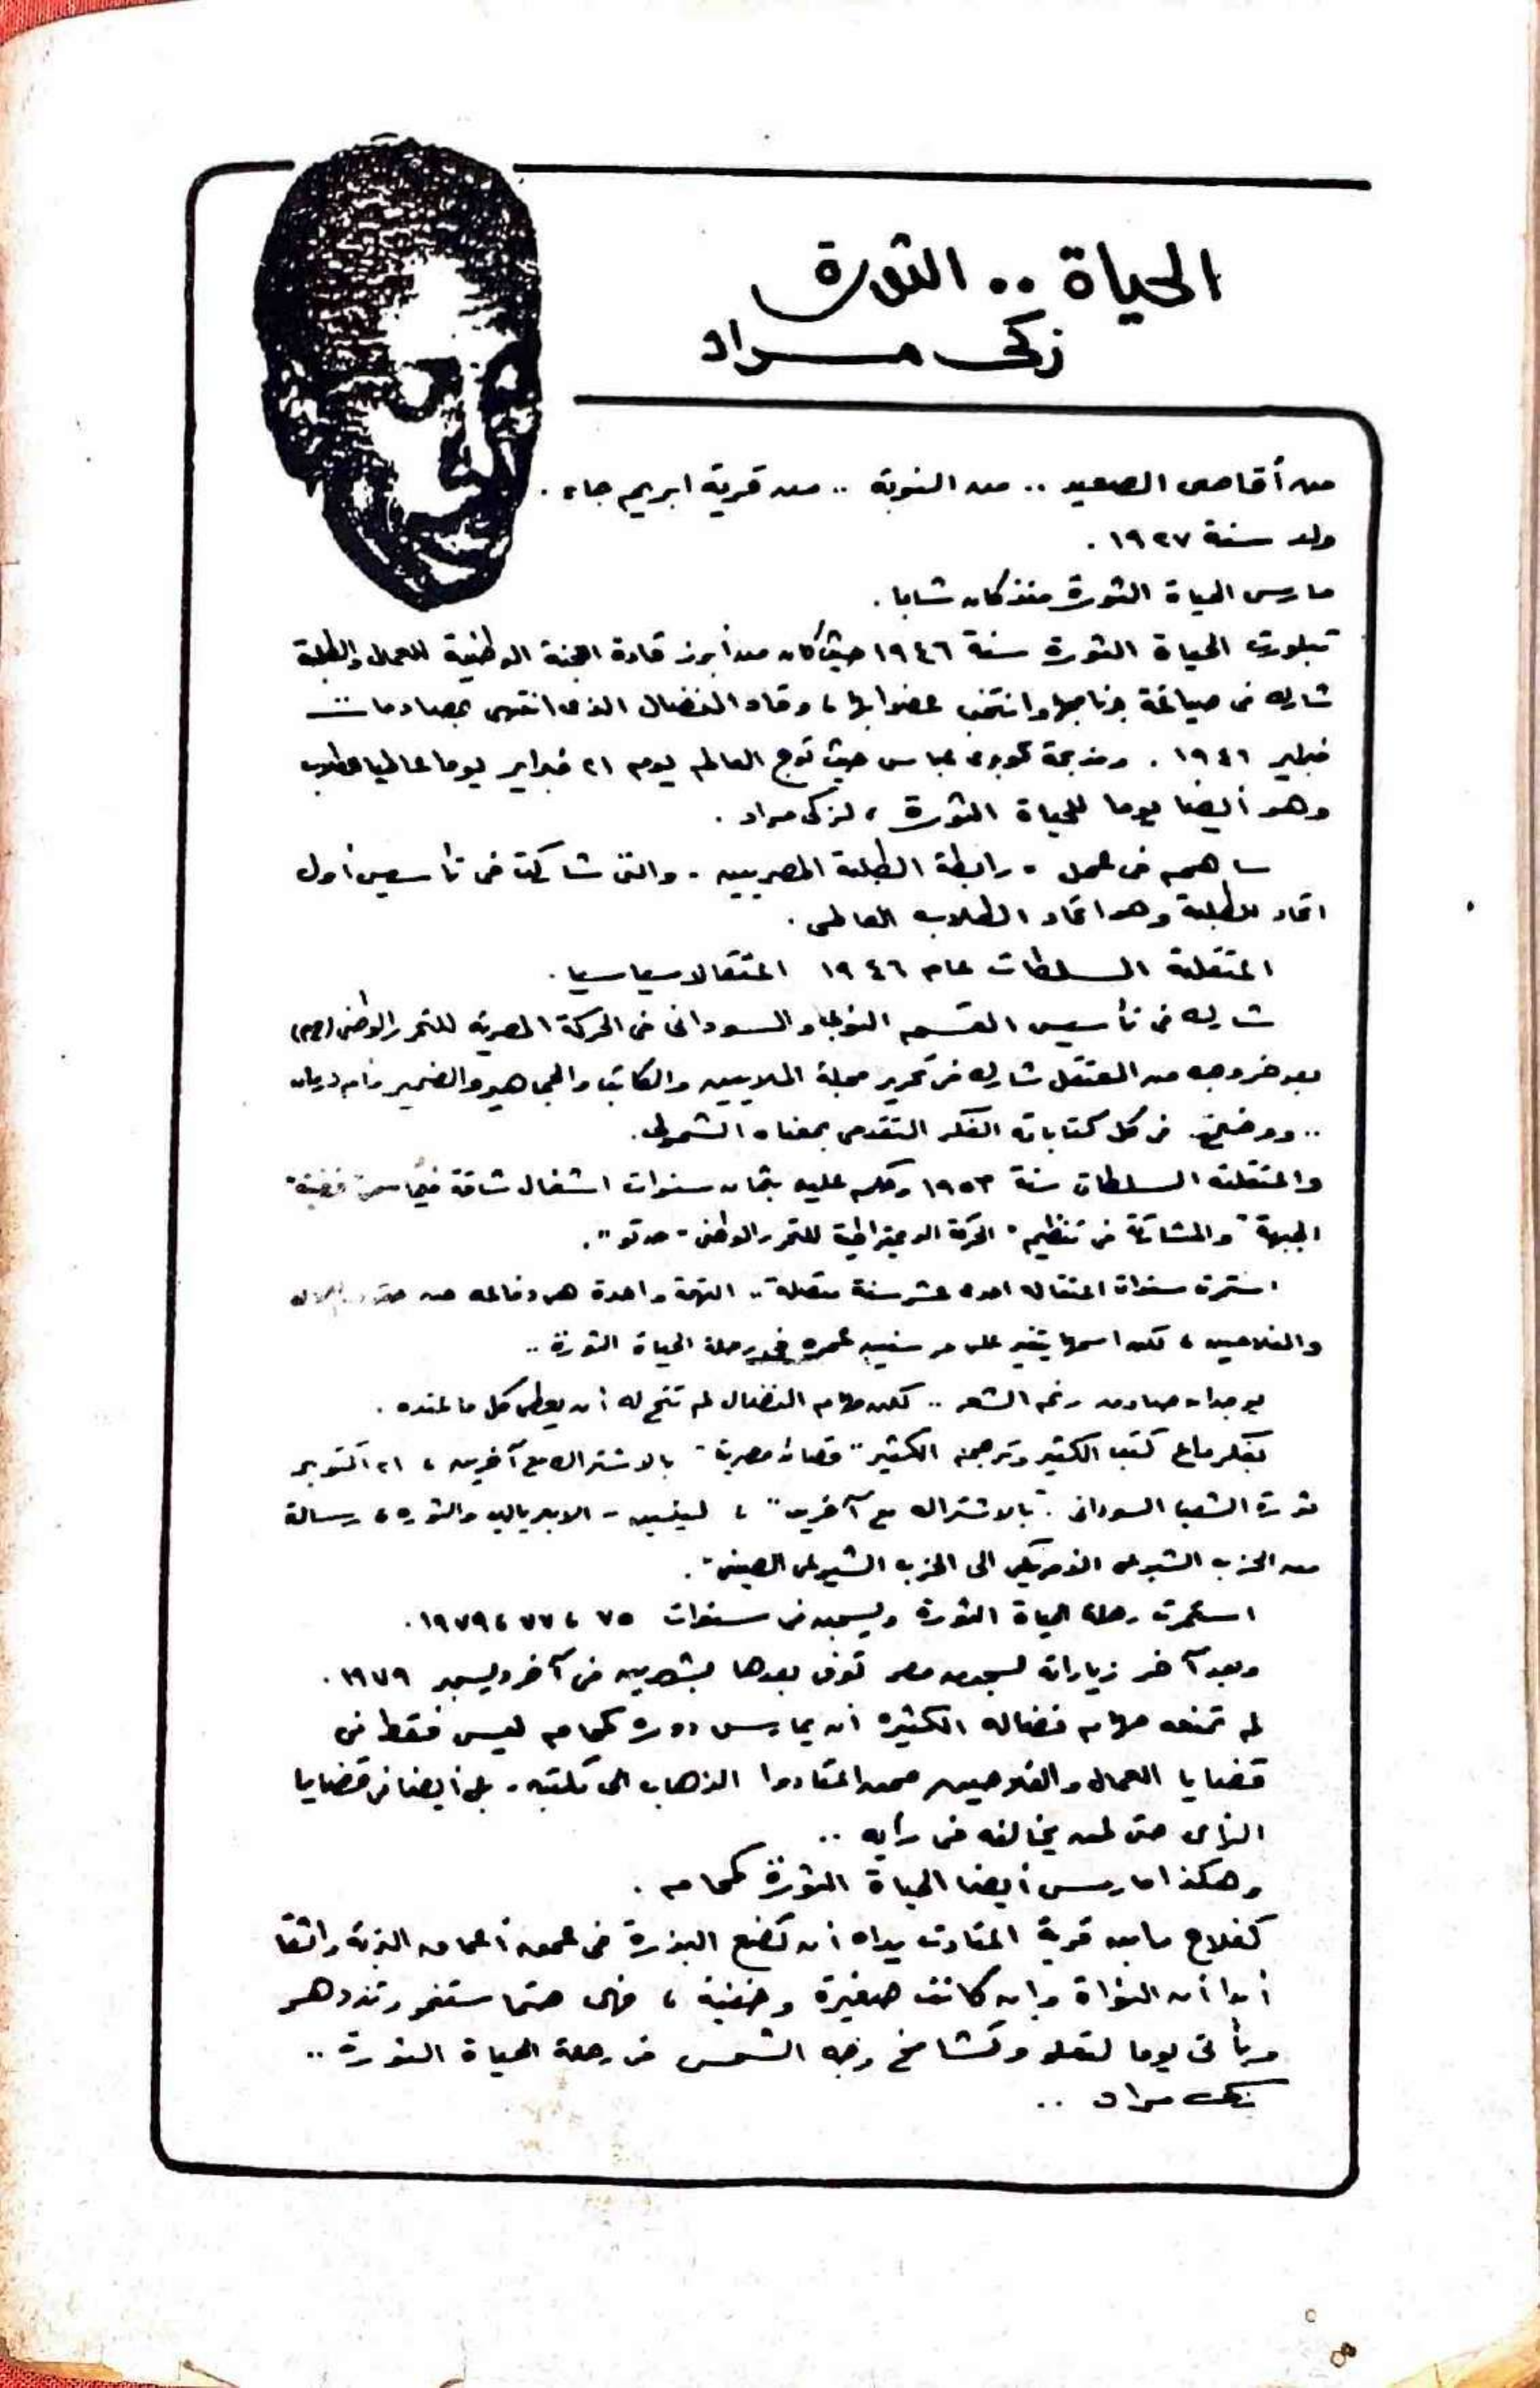 الحياة .. الثورة
زكى مراد
من أقاصى الصعيد .. من النوبة .. من قرية ابريم جاء .
ولد سنة ١٩٢٧ .
مارس الحياة الثورة منذ كان شابا .
تبلورت الحياة الثورة سنة ١٩٤٦ حيث كان من أبرز قادة اللجنة الوطنية للعمال والطلبة
شارك فى صياغة برنامجها وانتخب عضوا بها ، وقاد النضال الذى انتهى بمصادمات
فبراير ١٩٤٦ . ومذبحة كوبرى عباس حيث توج العالم يوم ٢١ فبراير يوما عالميا للطلاب
وهو أيضا يوما للحياة الثورة ، لزكى مراد .
ساهم فى عمل رابطة الطلبة المصريين . والتى شاركت فى تأسيس أول
اتحاد للطلبة وهو اتحاد الطلاب العالمى .
اعتقلته السلطات عام ١٩٤٦ اعتقالا سياسيا .
شارك فى تأسيس القسم النوبى والسودانى فى الحركة المصرية للتحرر الوطنى (حم)
بعد خروجه من المعتقل شارك فى تحرير مجلة الملايين والكاتب والجماهير والضمير وأم درمان
.. ووضح فى كل كتاباته الفكر التقدمى بمعناه الشمولى .
واعتقلته السلطات سنة ١٩٥٣ وحكم عليه بثمان سنوات اشغال شاقة فيما سمى " قضية
الجبهة " والمشاركة فى تنظيم " الحركة الديمقراطية للتحرر الوطنى - حدتو " .
استمرت سنوات اعتقاله احدى عشر سنة متصلة .. التهمة واحدة هى دفاعه عن
والفلاحين ، لكن اسمها يتغير على مر سنين عمره فى رحلة الحياة الثورة ..
بوجدان صادق رغم الشعر .. لكن مهام النضال لم تتح له أن يعطى كل ما عنده .
بفكر كتب الكثير وترجم الكثير " قصائد مصرية " بالاشتراك مع آخرين ، ٢١ اكتوبر
ثورة الشعب السودانى . " بالاشتراك مع آخرين " ، لينين - الامبريالية والثورة ، رسالة
من الحزب الشيوعى الى الحزب الشيوعى الصينى " .
استمرت رحلة الحياة الثورة ويسجن فى سنوات ٧٥ ، ٧٧ ، ١٩٧٩ .
وبعد آخر زياراته لسجون مصر توفى بعدها بشهرين فى آخر ديسمبر ١٩٧٩ .
لم تمنعه مهام نضاله الكثيرة أن يمارس دوره كمحام ليس فقط فى
قضايا العمال والفلاحين ممن اعتادوا الذهاب الى مكتبه . بل أيضا فى قضايا
الرأى حتى لمن يخالفه فى رأيه ..
وهكذا مارس أيضا الحياة الثورة كمحام .
كفلاح قرية اعتادت يداه أن تضع البذرة فى عمق أعماق التربة واثقا
أبدا أن النواة وان كانت صغيرة وخفية ، فهى حتما ستنمو وتزدهر
ويأتى يوما لتعلو وتشامخ وجه الشمس فى رحلة الحياة الثورة ..
زكى مراد ..